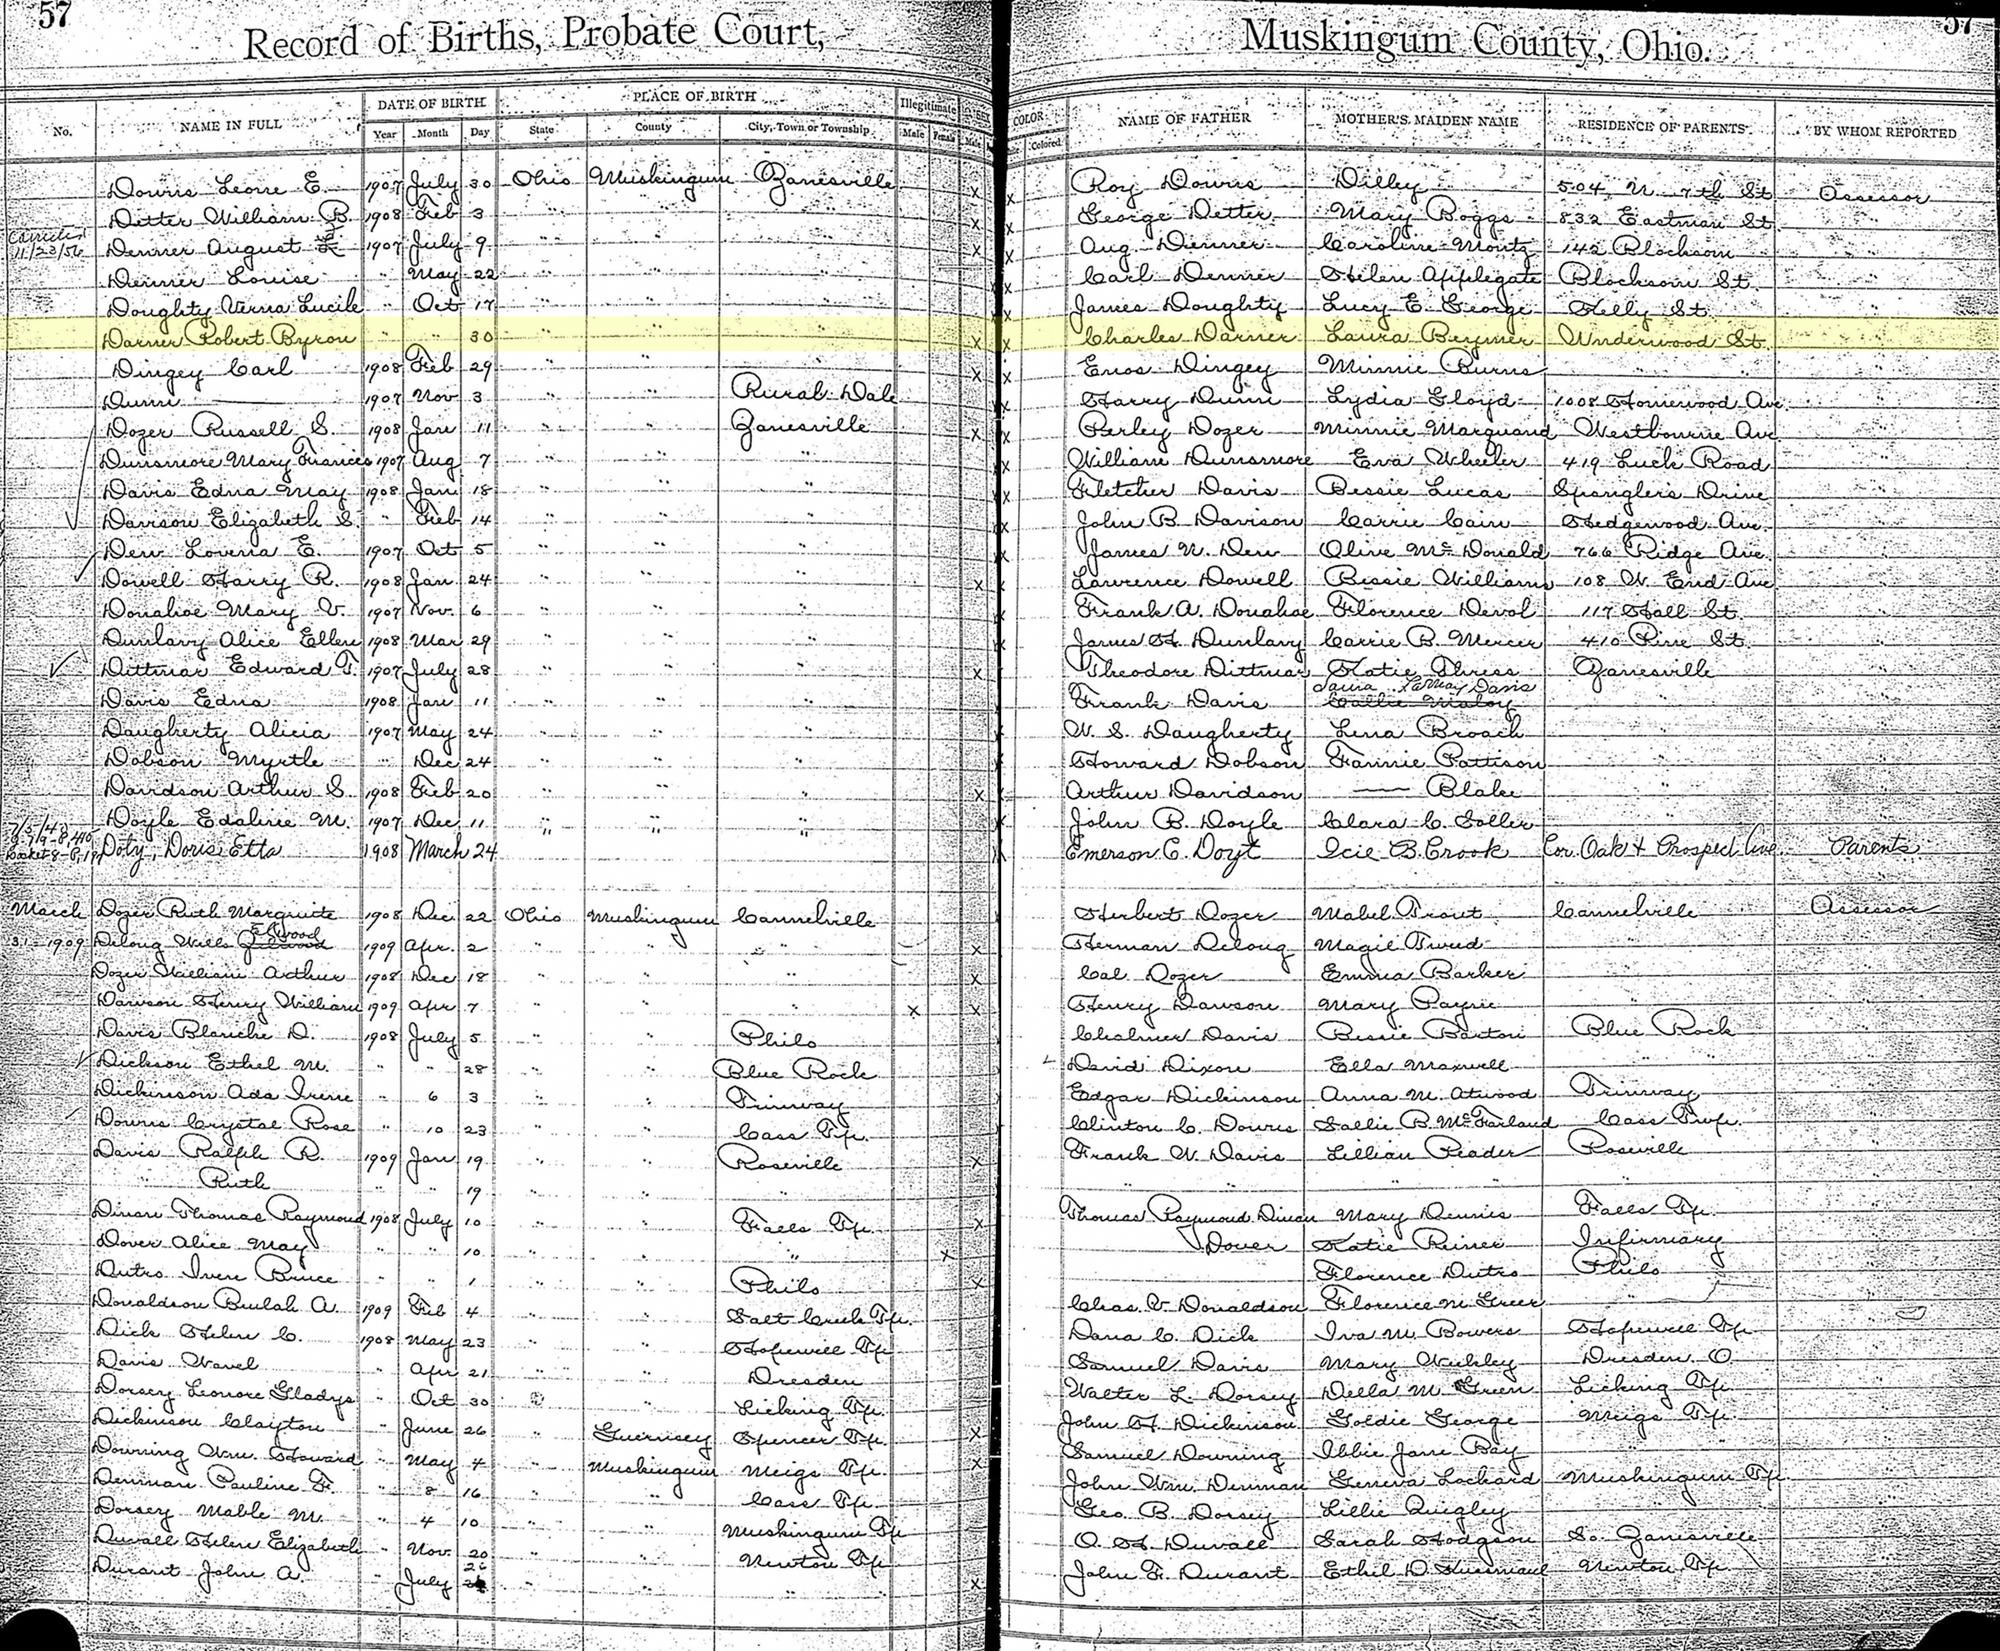 57 57
Record of Births, Probate Court, Muskingum County, Ohio.
No. NAME IN FULL DATE OF BIRTH Year Month Day PLACE OF BIRTH State County City, Town or Township Illegitimate Male Female SEX Male COLOR Colored NAME OF FATHER MOTHER'S MAIDEN NAME RESIDENCE OF PARENTS BY WHOM REPORTED
Downs Leone E. 1907 July 30 Ohio Muskingum Zanesville x x Roy Downs Dilley 504 N. 7th St Assessor
Detter William B. 1908 Feb 3 " " " x x George Detter Mary Boggs 832 Eastman St. "
Corrected 11/23/56 Denner August 1907 July 9 " " " x x Aug Denner Caroline Montz 142 Blocksom "
Denner Louise " May 22 " " " x Carl Denner Helen Applegate Blocksom St. "
Doughty Verna Lucile " Oct 17 " " " x James Doughty Lucy E. George Kelly St. "
Darner Robert Byron " " 30 " " " x x Charles Darner Laura Beymer Underwood St. "
Dingey Carl 1908 Feb 29 " " " x x Enos Dingey Minnie Burns " "
Dunn — 1907 Nov 3 " " Rural Dale x Harry Dunn Lydia Gloyd 1008 Homewood Ave. "
Dozer Russell S. 1908 Jan 11 " " Zanesville x x Perley Dozer Minnie Marquand Westbourne Ave. "
Dunsmore Mary Frances 1907 Aug 7 " " " x William Dunsmore Eva Wheeler 419 Luck Road "
Davis Edna May 1908 Jan 18 " " " x Fletcher Davis Bessie Lucas Spanglers Drive "
Davison Elizabeth S. " Feb 14 " " " x John B. Davison Carrie Cain Hedgewood Ave. "
Dew Lovena E. 1907 Oct 5 " " " x James N. Dew Olive McDonald 766 Ridge Ave. "
Dowell Harry R. 1908 Jan 24 " " " x x Lawrence Dowell Bessie Williams 108 W. End Ave "
Donahoe Mary V. 1907 Nov. 6 " " " x Frank A. Donahoe Florence Devol 117 Hall St. "
Dunlavy Alice Ellen 1908 Mar 29 " " " x James H. Dunlavy Carrie B. Mercer 410 Pine St. "
Dittmar Edward T. 1907 July 28 " " " x Theodore Dittmar Katie Thress Zanesville "
Davis Edna 1908 Jan 11 " " " Frank Davis Laura Davis " "
Daugherty Alicia 1907 May 24 " " " W. S. Daugherty Lena Broach " "
Dobson Myrtle " Dec 24 " " " Howard Dobson Fannie Pattison " "
Davidson Arthur S. 1908 Feb 20 " " " x x Arthur Davidson — Blake " "
Doyle Edaline M. 1907 Dec 11 " " " x John B. Doyle Clara C. Soller " "
Doty, Doris Etta 1908 March 24 Emerson C. Doyt Icie B. Crook Cor. Oak & Prospect Ave. Parents
March Dozer Ruth Marguite 1908 Dec 22 Ohio Muskingum Cannelville Herbert Dozer Mabel Trout Cannelville Assessor
31-1909 Delong Willis Elwood 1909 Apr. 2 " " " x Herman Delong Magie Tweed " "
Dozer William Arthur 1908 Dec 18 " " " x Cal Dozer Emma Barker " "
Dawson Henry William 1909 Apr 7 " " " x x Henry Dawson Mary Payne " "
Davis Blanche D. 1908 July 5 " " Philo Chalmer Davis Bessie Barton Blue Rock "
Dickson Ethel M. " " 28 " " Blue Rock David Dixon Ella Maxwell " "
Dickinson Ada Irene " 6 3 " " Trinway Edgar Dickinson Anna M. Atwood Trinway "
Downs Crystal Rose " 10 23 " " Cass Tp. Clinton C. Downs Sallie B. McFarland Cass Twp. "
Davis Ralph R. 1909 Jan 19 " " Roseville x Frank W. Davis Lillian Reader Roseville "
" Ruth " " 19 " " " " " " "
Dinan Thomas Raymond 1908 July 10 " " Falls Tp. x Thomas Raymond Dinan Mary Dennis Falls Tp. "
Dover Alice May " " 10 " " " x Dover Katie Reiner Infirmary "
Dutro Iven Bruce " " 1 " " Philo x Florence Dutro Philo "
Donaldson Beulah A. 1909 Feb 4 " " Salt Creek Tp. Chas. V. Donaldson Florence M. Greer " "
Dick Helen C. 1908 May 23 " " Hopewell Tp Dana C. Dick Iva M. Bowers Hopewell Tp "
Davis Wavel " Apr 21 " " Dresden Samuel Davis Mary Dresden O "
Dorsey Leonore Gladys " Oct 30 " " Licking Tp. Walter L. Dorsey Della M. Green Licking Tp. "
Dickinson Clayton " June 26 " Guernsey Spencer Tp. x John H. Dickinson Goldie George Meigs Tp. "
Downing Wm. Howard " May 4 " Muskingum Meigs Tp. x Samuel Downing Ibbie Jane Ray " "
Denman Pauline F. " 8 16 " " Cass Tp. John Wm. Denman Geneva Lockard Muskingum Tp. "
Dorsey Mable M. " 4 10 " " Muskingum Tp Geo. B. Dorsey Lillie Quigley " "
Duvall Helen Elizabeth " Nov. 20 " " Newton Tp O. H. Duvall Sarah Hodgson So. Zanesville "
Durant John A. " July 26 " " " x John F. Durant Ethel D. Newton Tp "